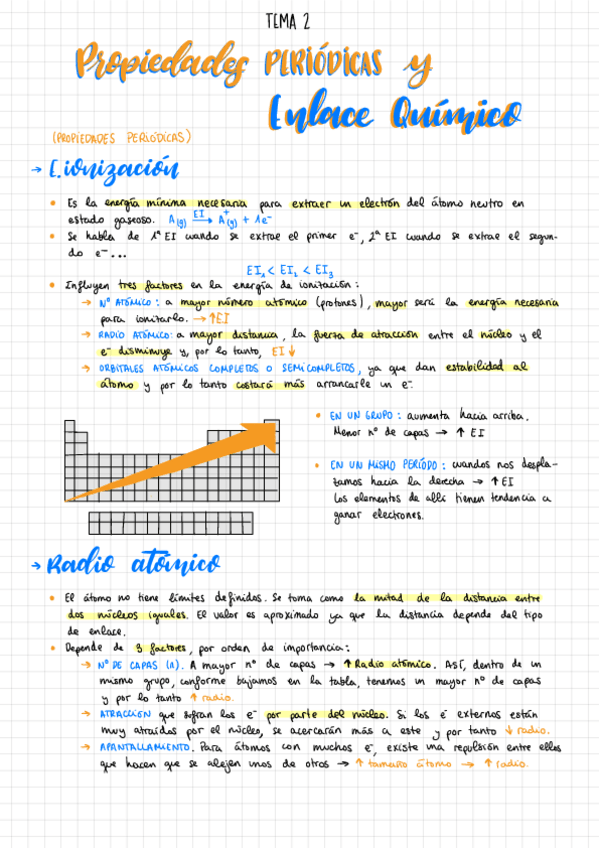 TEMA 2
Propiedades PERIÓDICAS y
Enlace Químico
(PROPIEDADES PERIÓDICAS)
→ E.ionización
• Es la energía mínima necesaria para extraer un electrón del átomo neutro en
estado gaseoso. A(g) EI→ A⁺(g) + 1e⁻
• Se habla de 1ª EI cuando se extrae el primer e⁻, 2ª EI cuando se extrae el segun-
do e⁻...
EI₁ < EI₂ < EI₃
• Influyen tres factores en la energía de ionización:
→ Nº ATÓMICO: a mayor número atómico (protones), mayor será la energía necesaria
para ionizarlo. → ↑EI
→ RADIO ATÓMICO: a mayor distancia, la fuerza de atracción entre el núcleo y el
e⁻ disminuye y, por lo tanto, EI ↓
→ ORBITALES ATÓMICOS COMPLETOS O SEMICOMPLETOS, ya que dan estabilidad al
átomo y por lo tanto costará más arrancarle un e⁻.
• EN UN GRUPO: aumenta hacia arriba.
Menor nº de capas → ↑ EI
• EN UN MISMO PERÍODO: cuandos nos despla-
zamos hacia la derecha → ↑ EI
Los elementos de allí tienen tendencia a
ganar electrones.
→ Radio atómico
• El átomo no tiene límites definidos. Se toma como la mitad de la distancia entre
dos núcleos iguales. El valor es aproximado ya que la distancia depende del tipo
de enlace.
• Depende de 3 factores, por orden de importancia:
→ Nº DE CAPAS (n). A mayor nº de capas → ↑ Radio atómico. ASÍ, dentro de un
mismo grupo, conforme bajamos en la tabla, tenemos un mayor nº de capas
y por lo tanto ↑ radio.
→ ATRACCIÓN que sufran los e⁻ por parte del núcleo. Si los e⁻ externos están
muy atraídos por el núcleo, se acercarán más a este y por tanto ↓ radio.
→ APANTALLAMIENTO. Para átomos con muchos e⁻, existe una repulsión entre ellos
que hacen que se alejen unos de otros → ↑ tamaño átomo → ↑ radio.